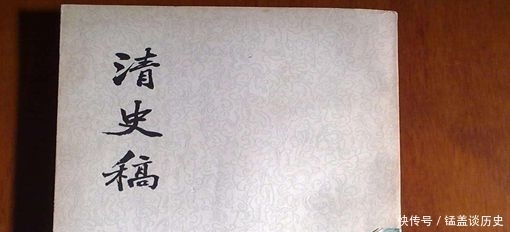 清史稿
快传号 / 锰盖谈历史